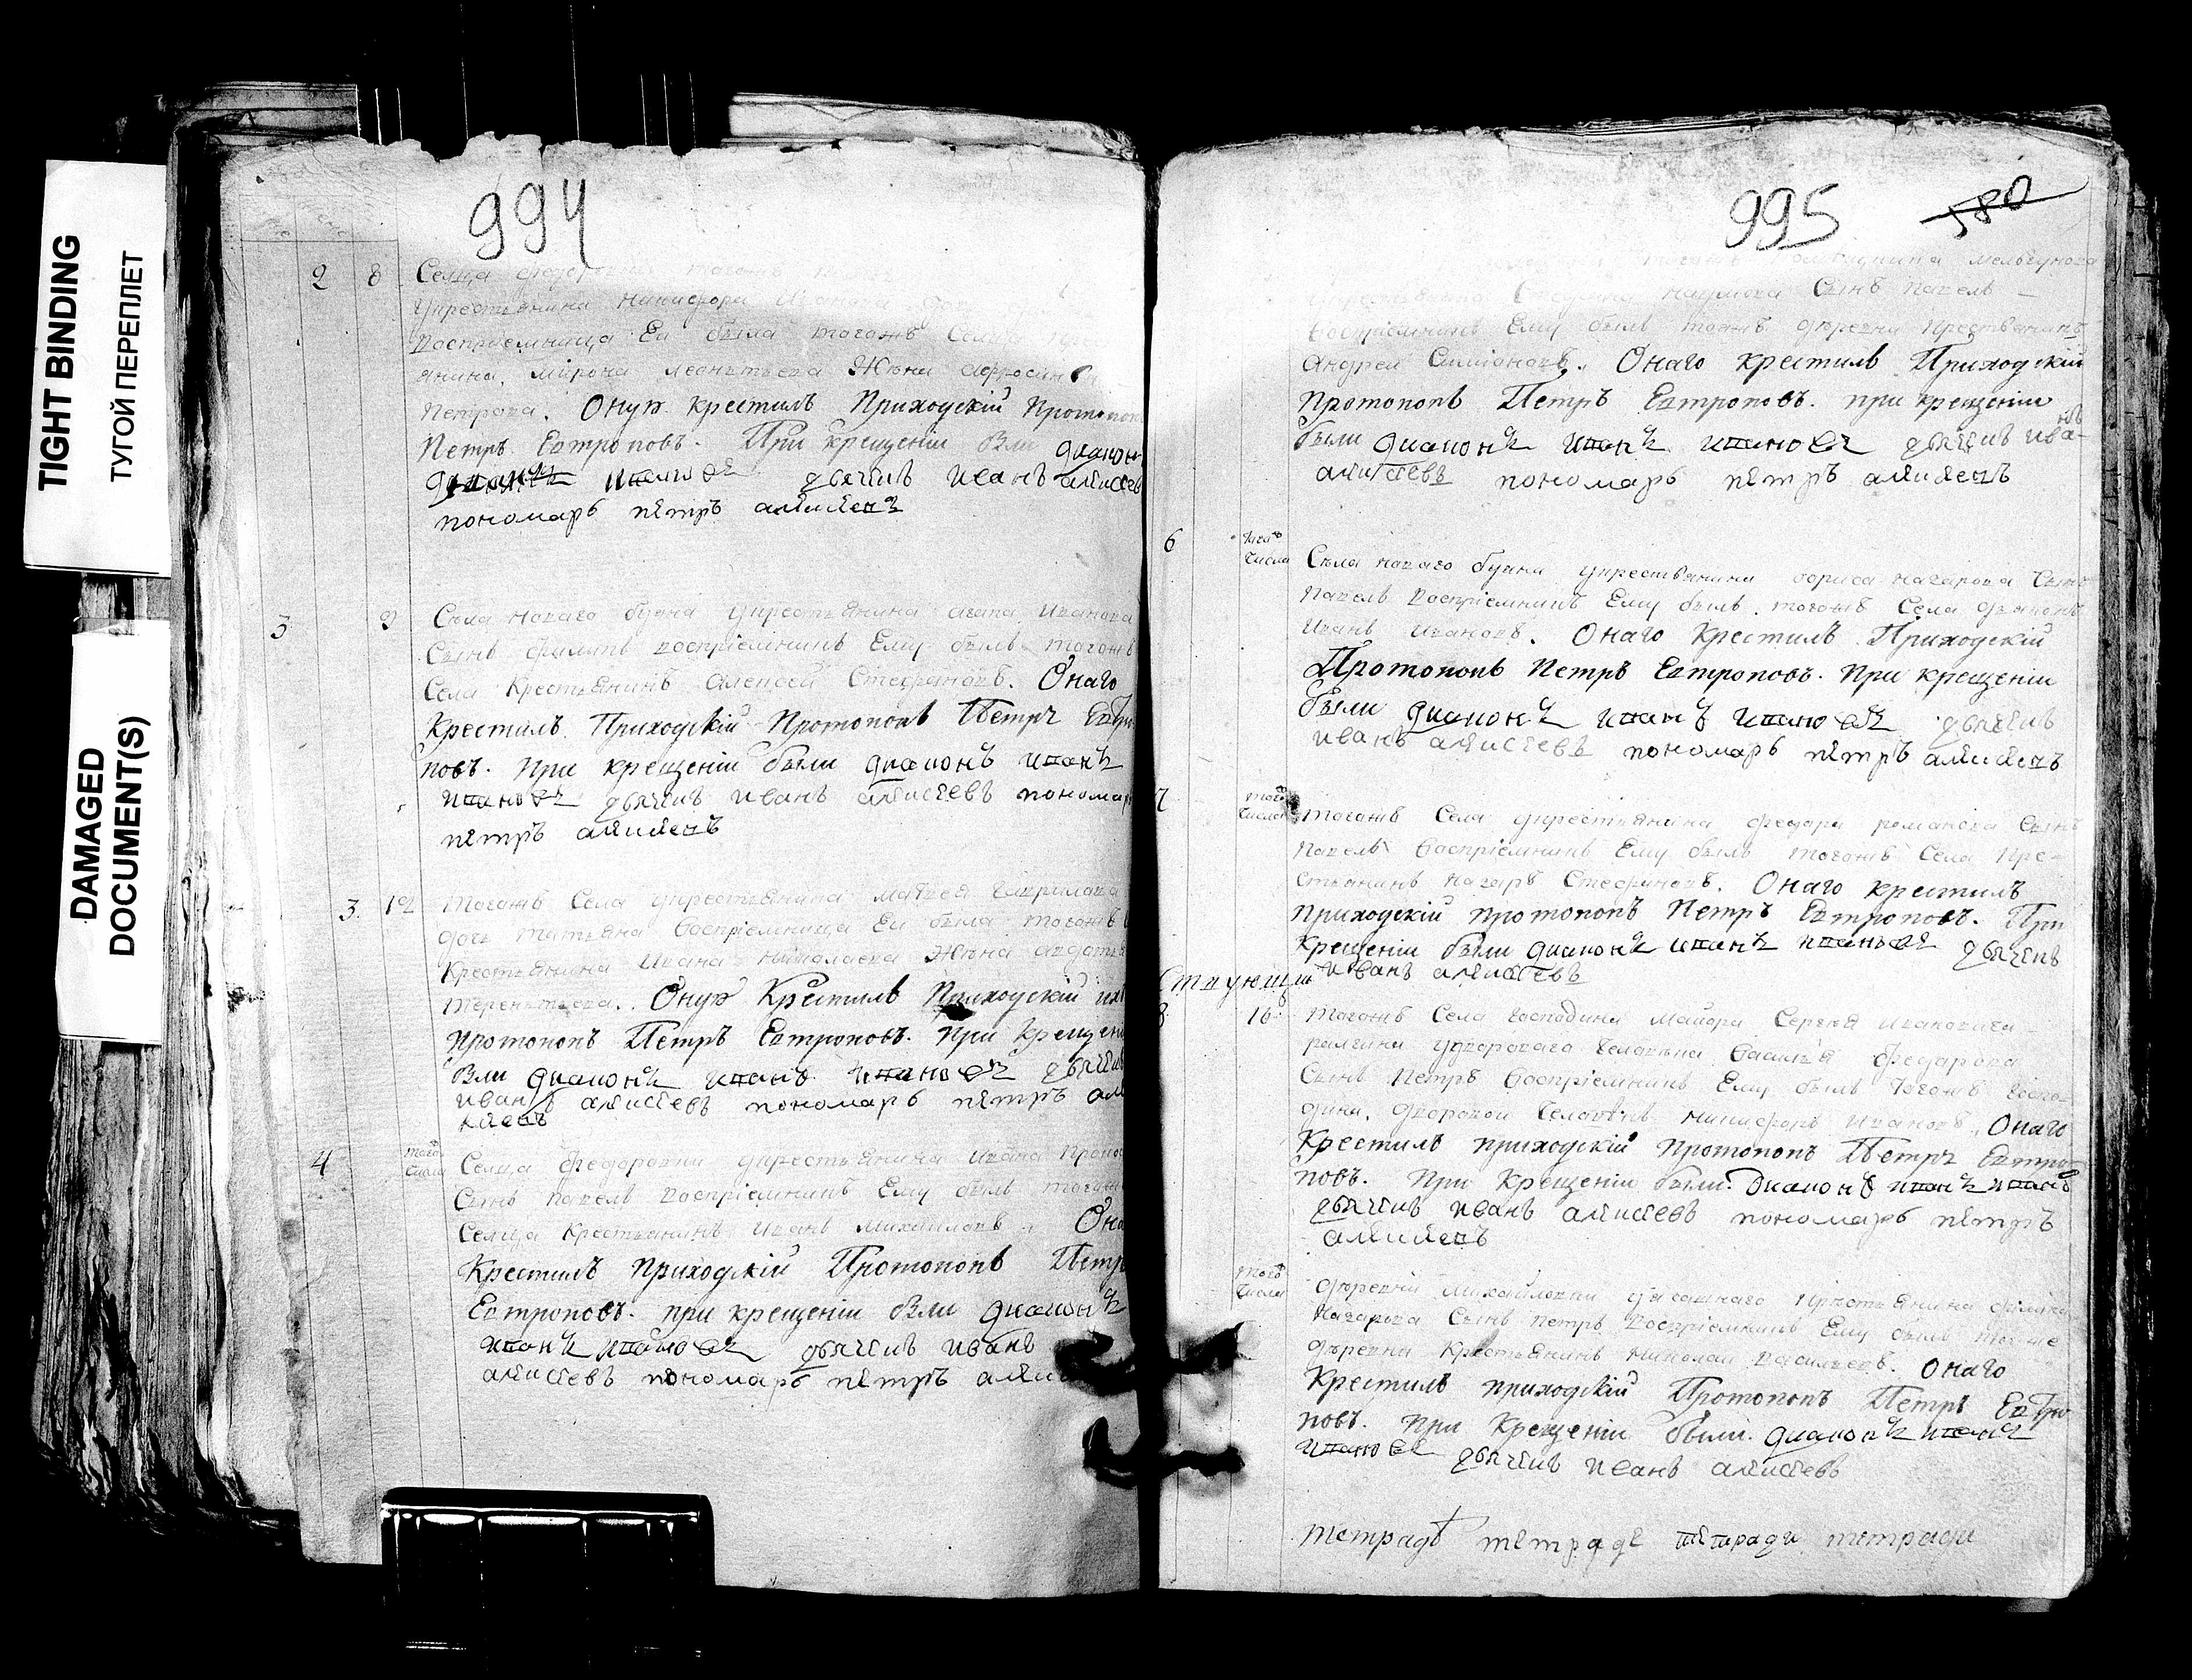 TIGHT BINDING
ТУГОЙ ПЕРЕПЛЕТ
DAMAGED
DOCUMENT(S)
994
2 8 Селца
укрестьянина никифора
восприемница Ей была тогожъ
янина мирона леонтьева Жѣна афросинья
Петрова. Онуѣ крестилъ Приходскій Протопоп
Петръ Евтроповъ. При крещеніи были диаконъ
ивановъ дьячекъ иванъ алѣксеев
пономарь пѣтръ алѣксѣевъ
3 9 Села новаго буяна укрестьянина агапа Иванова
Сынъ филипъ восприемникъ Ему былъ тогожъ
Села Крестьянинъ алексей Стефановъ. Онаго
Крестилъ Приходскій Протопопъ Петръ Евтро
повъ. При крещеніи были диаконъ иванъ
ивановъ дьячекъ иванъ алѣксѣевъ пономар
пѣтръ алѣксѣевъ
3. 12 Тогожъ Села укрестьянина матвея гаврилова
дочь татьяна восприемница Ей была тогожъ
Крестьянина Ивана николаева Жѣна авдотья
терентьева. Онуѣ Крестилъ Приходскій
протопопъ Петръ Евтроповъ. При крещени
были диаконъ иванъ ивановъ дьячекъ
иванъ алѣксѣевъ пономарь пѣтръ алѣ
ксѣевъ
4 того числа Селца федоровки укрестьянина Ивана
Сынъ павелъ восприемникъ Ему былъ тогожъ
Селца Крестьянинъ иванъ михайловъ. Она
Крестилъ приходскій Протопопъ Петръ
Евтроповъ. при крещеніи были диаконъ
иванъ ивановъ дьячекъ иванъ
алѣксѣевъ пономарь пѣтръ алѣкс
995 580
помещика мельгунова
Стефана наумова Сынъ павелъ
восприемникъ Ему былъ тояжъ дѣревни крестьянинъ
андрей Симионовъ. Онаго крестилъ Приходскій
протопопъ Петръ Евтроповъ. при крещеніи
были диаконъ иванъ ивановъ дьячекъ иванъ
алѣксѣевъ пономарь пѣтръ алѣксѣевъ
6 того числа Сѣла новаго буяна укрестьянина бориса назарова Сынъ
павелъ восприемникъ Ему былъ тогожъ Села дьяконъ
Иванъ Ивановъ. Онаго Крестилъ Приходскій
Протопопъ Петръ Евтроповъ. При крещеніи
были диаконъ иванъ ивановъ дьячекъ
иванъ алѣксѣевъ пономарь пѣтръ алѣксѣевъ
7 того числа тогожъ Села укрестьянина федора романова Сынъ
павелъ восприемникъ Ему былъ тогожъ Села кре-
стьянинъ назаръ Стефановъ. Онаго крестилъ
приходскій протопопъ Петръ Евтроповъ. При
крещеніи были диаконъ иванъ ивановъ дьячекъ
иванъ алѣксѣевъ
8 16 тогожъ Села господина маиора Сергея Ивановича
удворовага человека васил'я федарова
Сынъ Петръ восприемникъ Ему былъ тогожъ госпо-
дина, дворовой человекъ никифоръ Ивановъ. Онаго
Крестилъ приходскій Протопопъ Петръ Евтро
повъ. При Крещеніи были. Диаконъ иванъ ивановъ
дьячекъ иванъ алѣксѣевъ пономарь пѣтръ
алѣксѣевъ
того числа дѣревни михайловки уясашнаго крѣстьянина филипа
Назарова Сынъ петръ восприемникъ Ему былъ тоеже
дѣревни Крестьянинъ николай васильевъ. Онаго
Крестилъ приходскій Протопопъ Петръ Евтро
повъ. При Крещеніи были. диаконъ иванъ
ивановъ дьячекъ иванъ алѣксѣевъ
тетрадѣ тѣтрадѣ тѣтради тетради